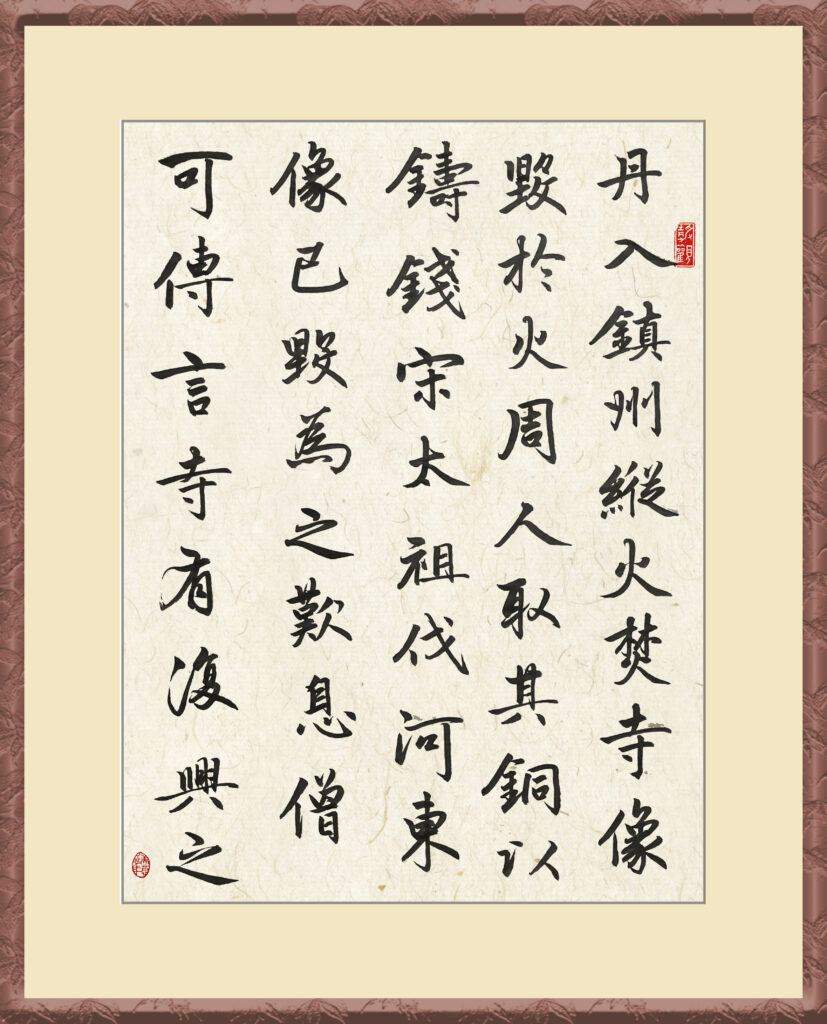 丹入鎮州縱火焚寺像
毀於火周人取其銅以
鑄錢宋太祖伐河東
像已毀為之歎息僧
可傳言寺有復興之